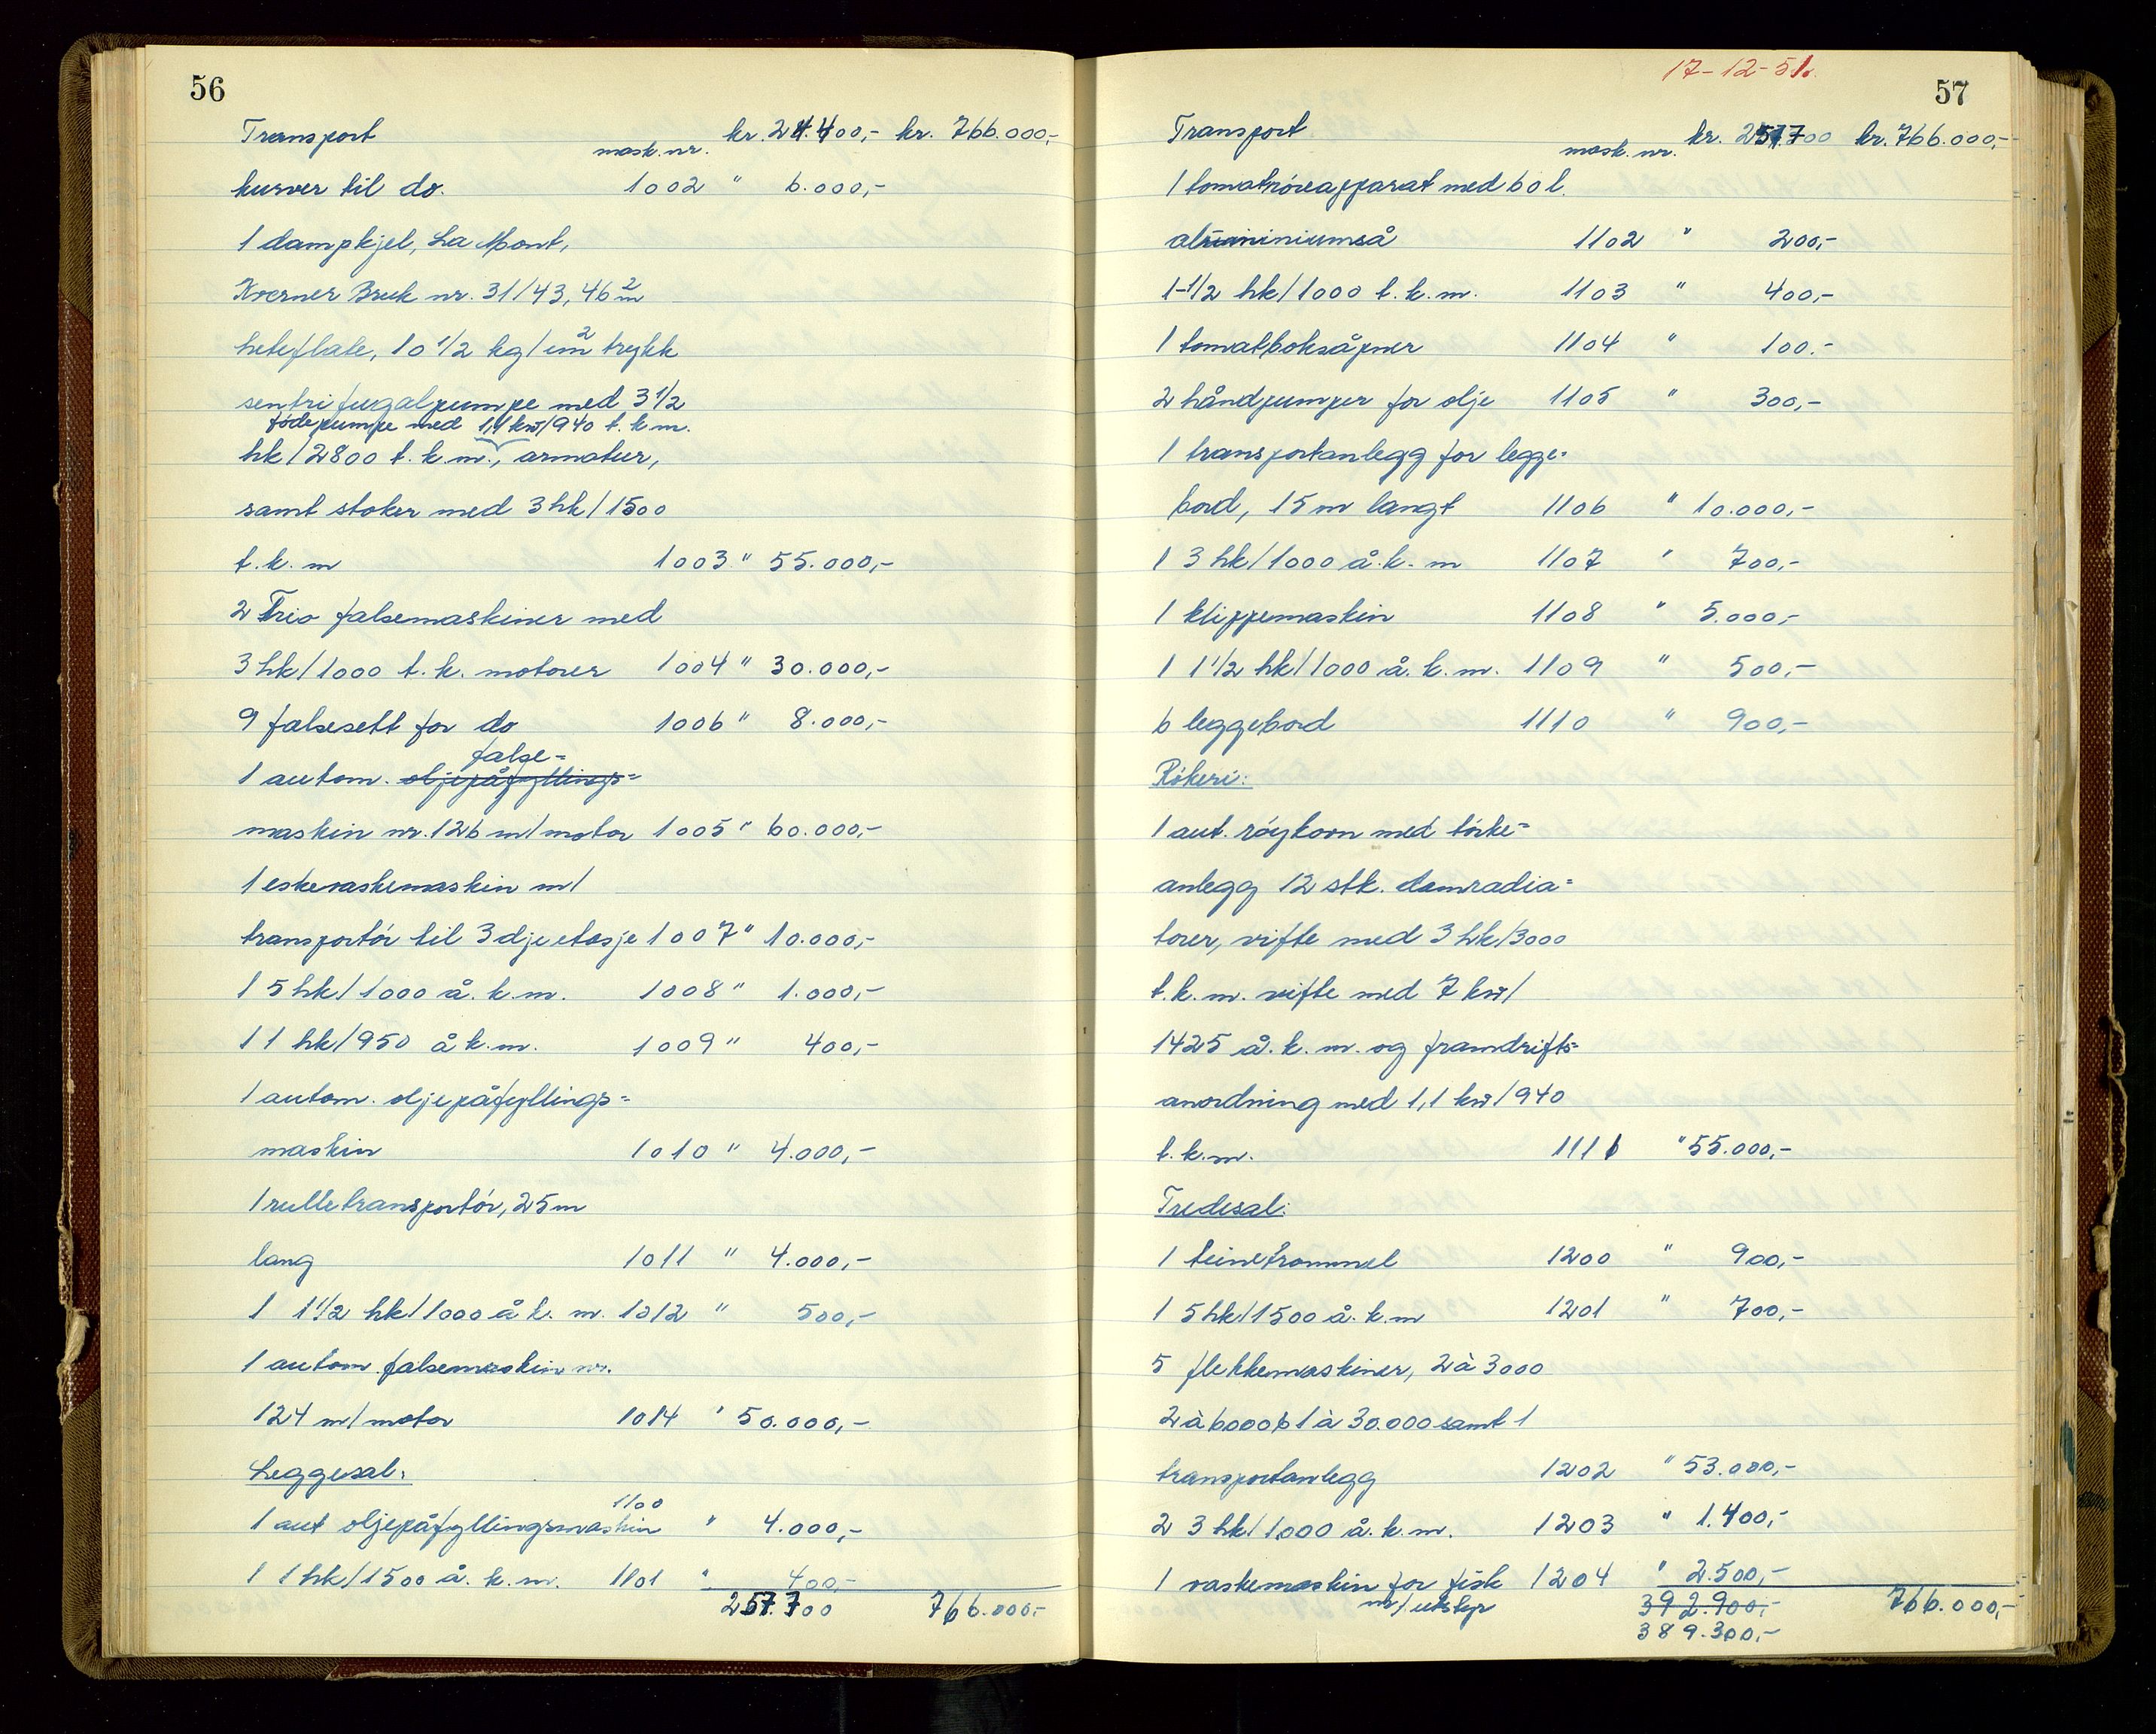 56
Transport kr. 24.400,- kr. 766.000,-
mask. nr.
kurver til do. 1002 " 6.000,-
1 dampkjel, La Mont,
Kværner Bruk nr. 31/43, 46 m2
heteflate, 10 1/2 kg/cm2 trykk
sentrifugalpumpe med 3 1/2
födepumpe med 1,1 kw/940 t. k. m.
hk/2800 t. k. m., armatur,
samt stoker med 3 hk/1500
t. k. m 1003 " 55.000,-
2 Trio falsemaskiner med
3 hk/1000 t. k. motorer 1004 " 30.000,-
9 falsesett for do 1006 " 8.000,-
false=
1 autom. oljepåfyllings=
maskin nr. 126 m/motor 1005 " 60.000,-
1 eskevaskemaskin m/
transportör til 3dje etasje 1007 " 10.000,-
1 5 hk/1000 å. k. m. 1008 " 1.000,-
1 1 hk/950 å k. m. 1009 " 400,-
1 autom. oljepåfyllings=
maskin 1010 " 4.000,-
1 rulletransportör, 25 m
lang 1011 " 4.000,-
1 1 1/2 hk/1000 å k. m. 1012 " 500,-
1 autom. falsemaskin nr.
124 m/motor 1014 " 50.000,-
Leggesal:
1100
1 aut oljepåfyllingsmaskin " 4.000,-
1 1 hk/1500 å. k. m. 1101 " 400,-
257.700 766.000,-
17-12-51.
57
Transport kr. 257.700 kr. 766.000,-
mask. nr.
1 tomatröreapparat med 60 l.
aluminiumså 1102 " 200,-
1-1/2 hk/1000 t. k. m. 1103 " 400,-
1 tomatboksåpner 1104 " 100.-
2 håndpumper for olje 1105 " 300,-
1 transportanlegg for legge=
bord, 15 m langt 1106 " 10.000,-
1 3 hk/1000 å. k. m 1107 " 700,-
1 klippemaskin 1108 " 5.000,-
1 1 1/2 hk/1000 å. k. m. 1109 " 500,-
6 leggebord 1110 " 900,-
Rökeri:
1 aut. röykovn med törke=
anlegg 12 stk. damradia=
torer, vifte med 3 hk/3000
t. k. m. vifte med 7 kw/
1425 å. k. m. og framdrifts=
anordning med 1,1 kw/940
t. k. m. 1111 " 55.000,-
Tredesal:
1 teinetrommel 1200 " 900,-
1 5 hk/1500 å. k. m 1201 " 700,-
5 flekkemaskiner, 2 à 3000
2 à 6000 1 à 30.000 samt 1
transportanlegg 1202 " 53.000,-
2 3 hk/1000 å. k. m. 1203 " 1.400,-
1 vaskemaskin for fisk 1204 " 2.500,-
m/utstyr 392.900,- 766.000,-
389.300,-